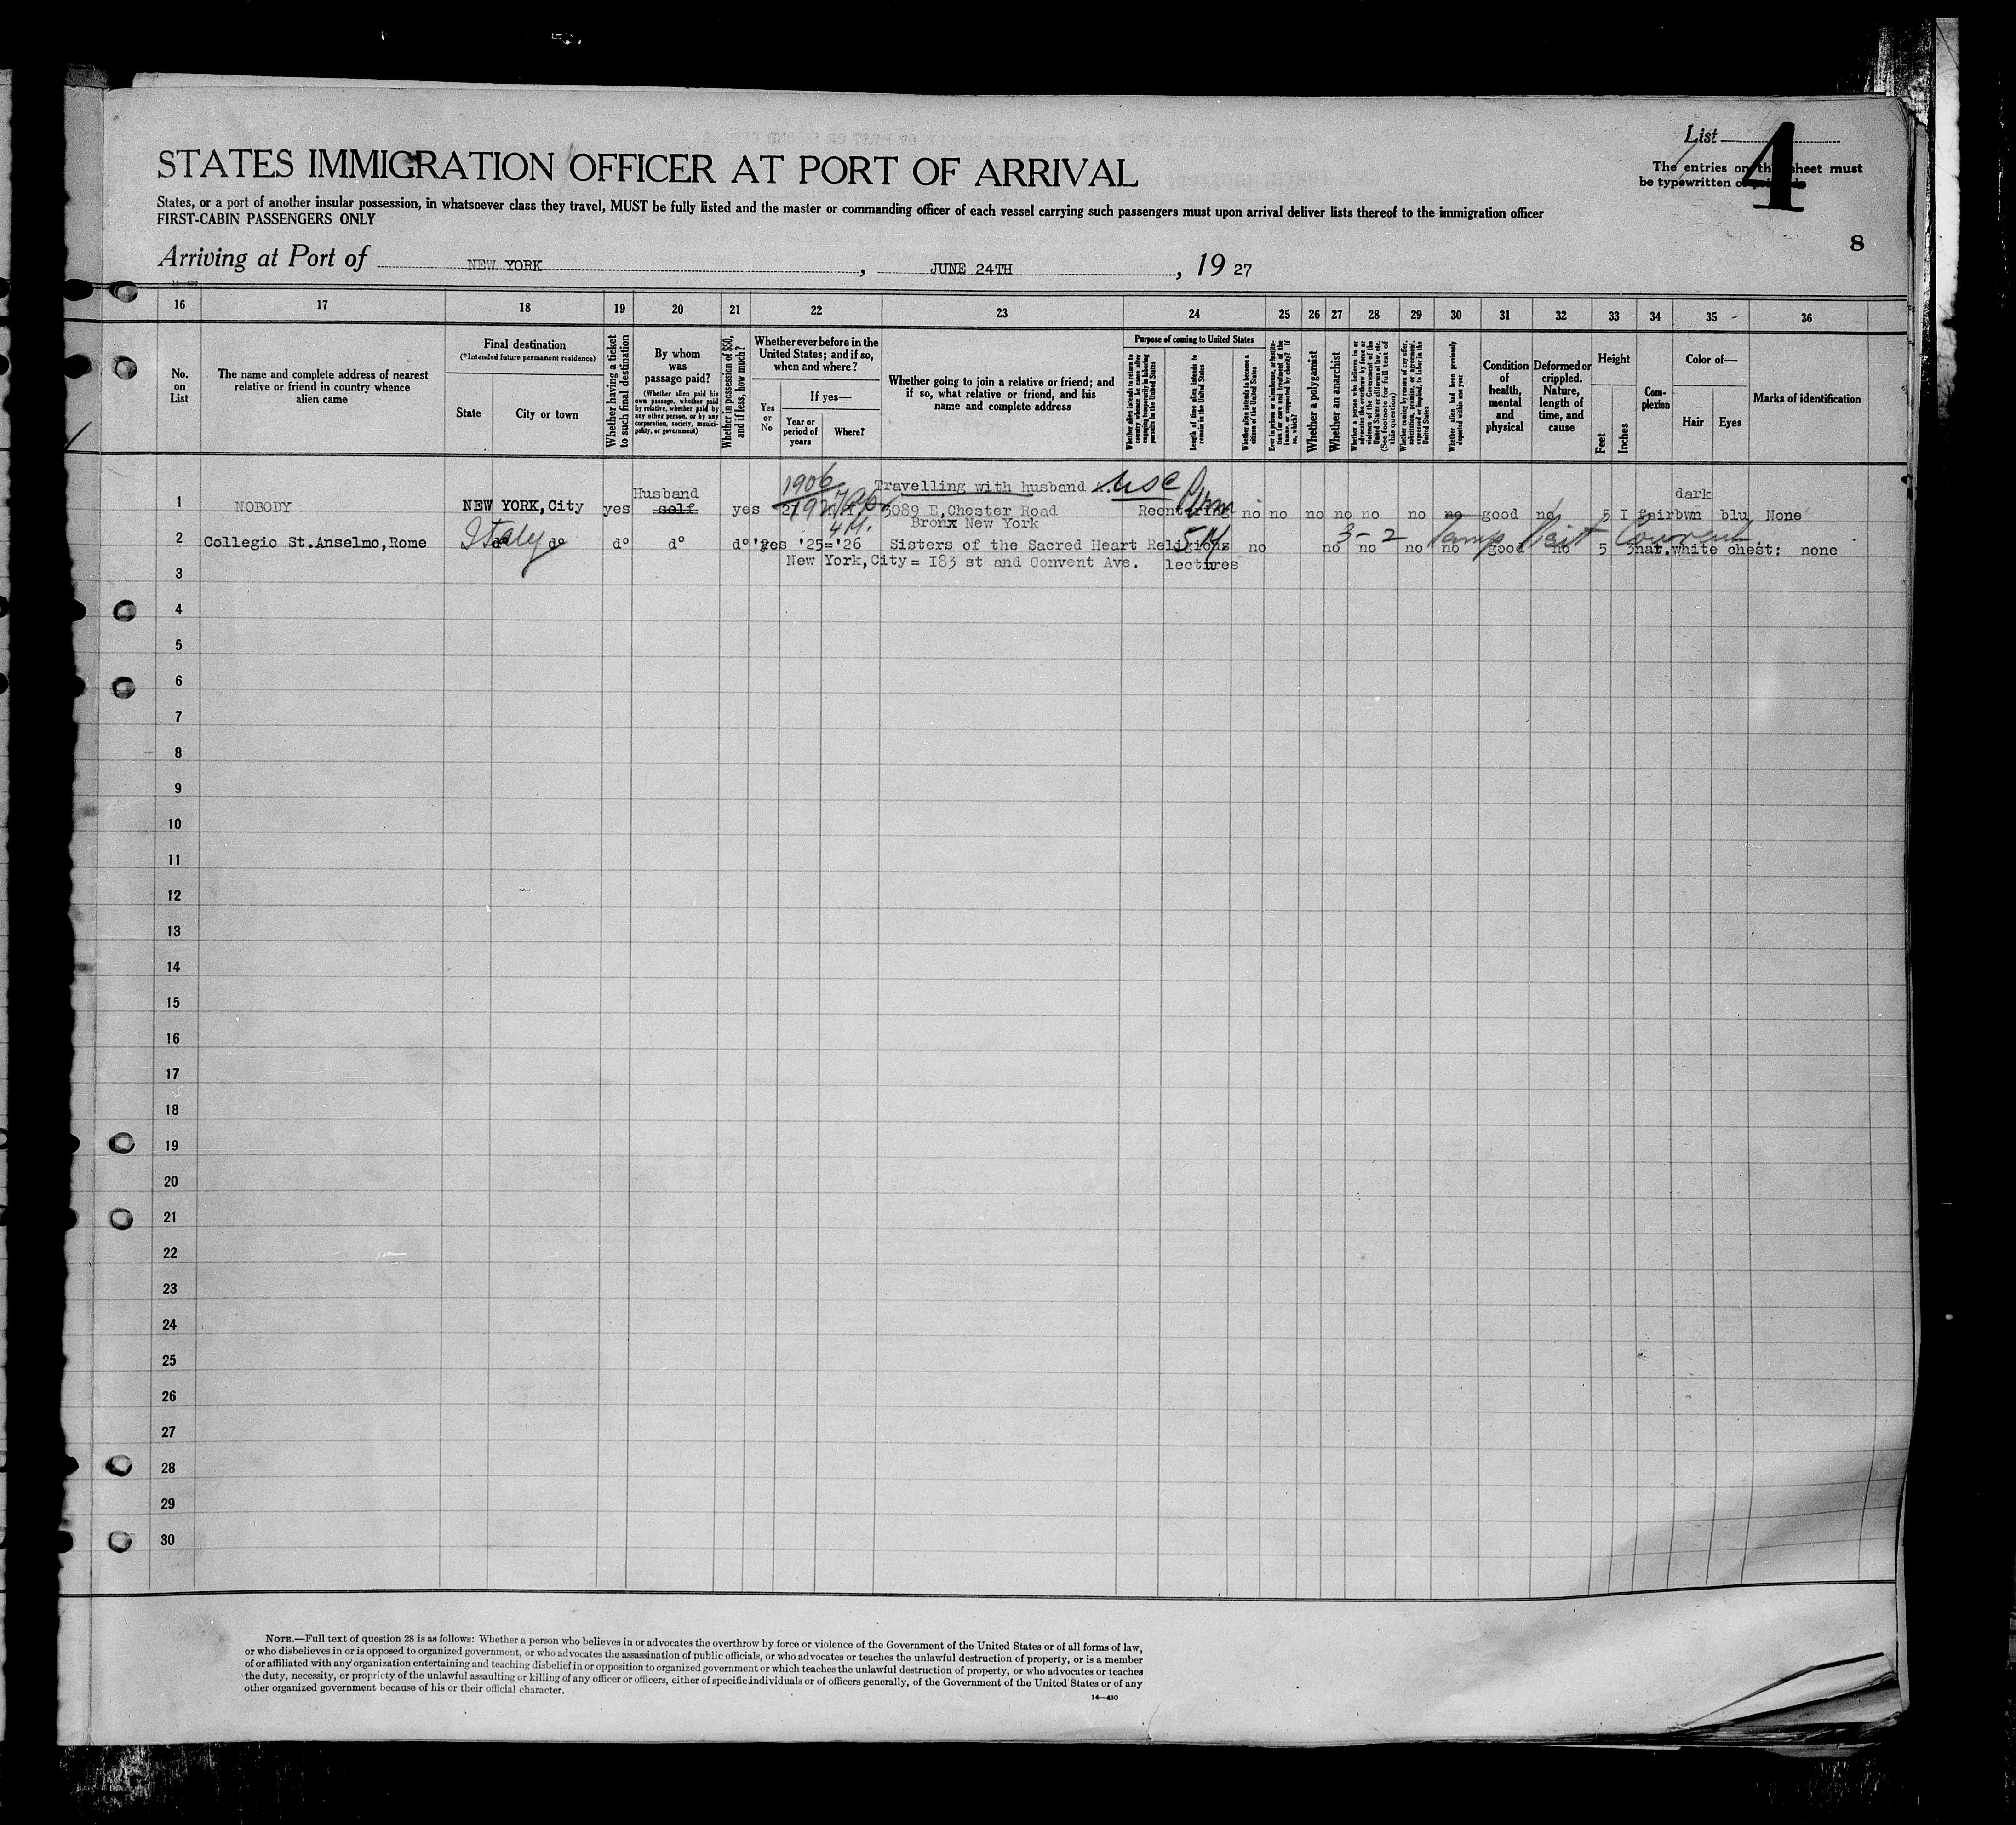 List
4
The entries on this sheet must
be typewritten or
8
STATES IMMIGRATION OFFICER AT PORT OF ARRIVAL
States, or a port of another insular possession, in whatsoever class they travel, MUST be fully listed and the master or commanding officer of each vessel carrying such passengers must upon arrival deliver lists thereof to the immigration officer
FIRST-CABIN PASSENGERS ONLY
Arriving at Port of NEW YORK, JUNE 24TH, 19 27
14—430
16 17 18 19 20 21 22 23 24 25 26 27 28 29 30 31 32 33 34 35 36
No. on List
The name and complete address of nearest relative or friend in country whence alien came
Final destination
(*Intended future permanent residence)
State
City or town
Whether having a ticket to such final destination
By whom was passage paid?
(Whether alien paid his own passage, whether paid by relative, whether paid by any other person, or by any corporation, society, municipality, or government)
Whether in possession of $50, and if less, how much?
Whether ever before in the United States; and if so, when and where?
Yes or No
If yes—
Year or period of years
Where?
Whether going to join a relative or friend; and if so, what relative or friend, and his name and complete address
Purpose of coming to United States
Whether alien intends to return to country whence he came after engaging temporarily in laboring pursuits in the United States
Length of time alien intends to remain in the United States
Whether alien intends to become a citizen of the United States
Ever in prison or almshouse, or institution for care and treatment of the insane, or supported by charity? If so, which?
Whether a polygamist
Whether an anarchist
Whether a person who believes in or advocates the overthrow by force or violence of the Government of the United States or all forms of law, etc. (See footnote for full text of this question)
Whether coming by reason of any offer, solicitation, promise, or agreement, expressed or implied, to labor in the United States
Whether alien had been previously deported within one year
Condition of health, mental and physical
Deformed or crippled. Nature, length of time, and cause
Height
Feet
Inches
Complexion
Color of—
Hair
Eyes
Marks of identification
1906 Travelling with husband USC dark
Husband
1 NOBODY NEW YORK,City yes self yes 3089 E,Chester Road Reentering no no no no no no no good no 5 I fair bwn blu None
4 M. Bronx New York
2 Collegio St.Anselmo,Rome Italy d° d° d° d° d° yes '25='26 Sisters of the Sacred Heart Religions 5M no no 3-2 no no no Temp good Visit no Convent 5 nat. white chest: none
New York,City= I83 st and Convent Ave. lectures
3
4
5
6
7
8
9
10
11
12
13
14
15
16
17
18
19
20
21
22
23
24
25
26
27
28
29
30
NOTE.—Full text of question 28 is as follows: Whether a person who believes in or advocates the overthrow by force or violence of the Government of the United States or of all forms of law,
or who disbelieves in or is opposed to organized government, or who advocates the assassination of public officials, or who advocates or teaches the unlawful destruction of property, or is a member
of or affiliated with any organization entertaining and teaching disbelief in or opposition to organized government or which teaches the unlawful destruction of property, or who advocates or teaches
the duty, necessity, or propriety of the unlawful assaulting or killing of any officer or officers, either of specific individuals or of officers generally, of the Government of the United States or of any
other organized government because of his or their official character.
14—430